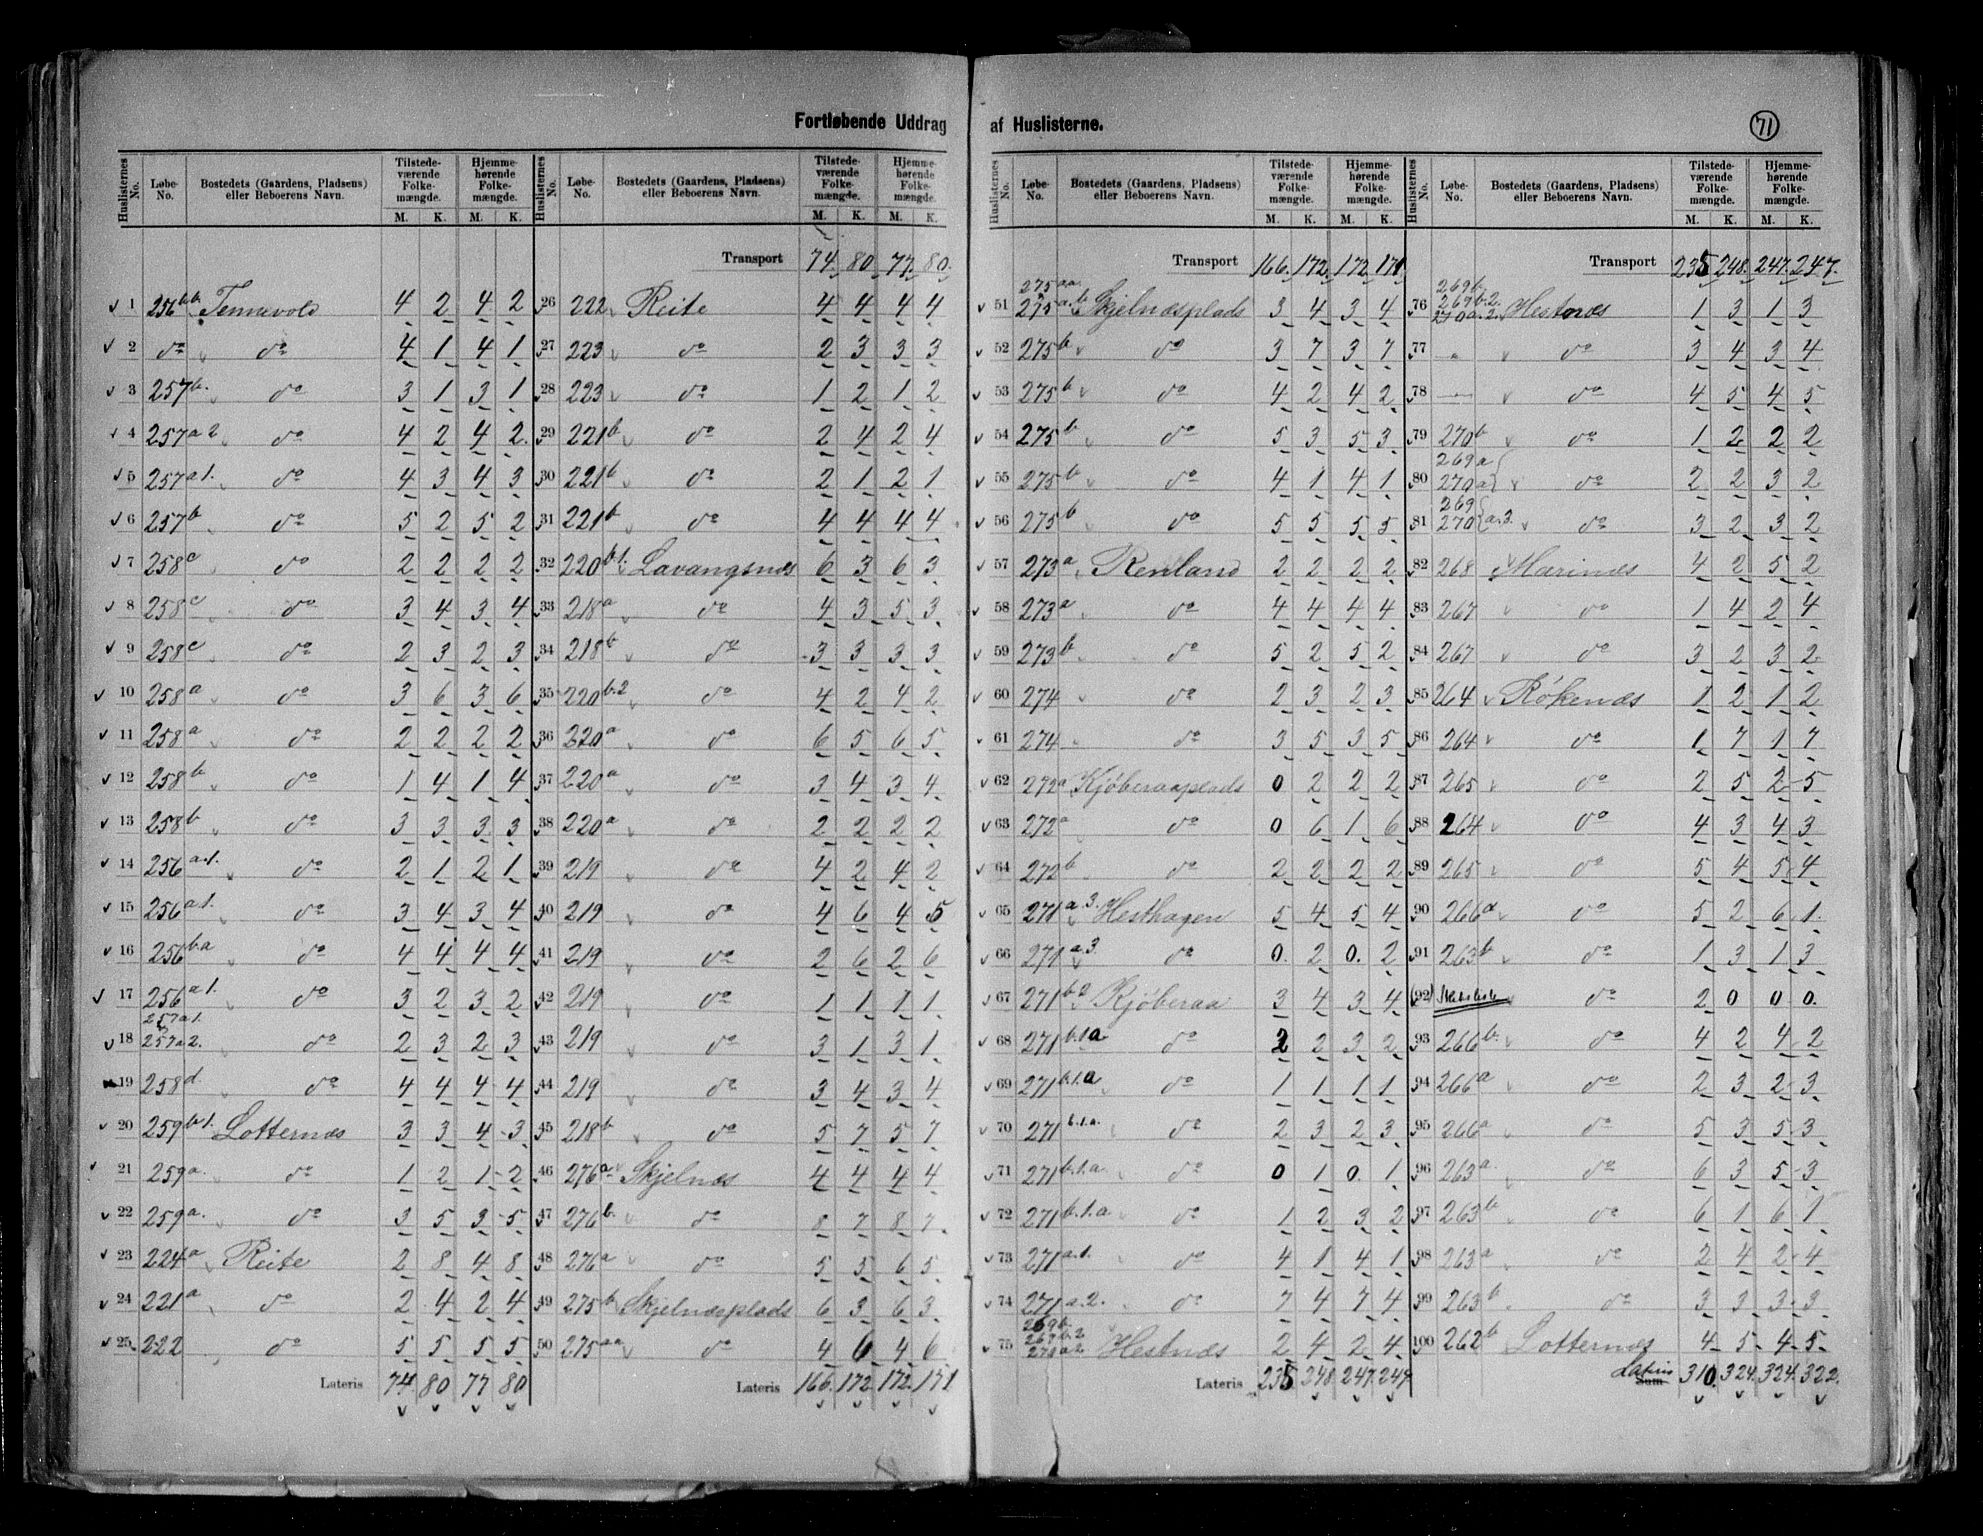 Fortløbende Uddrag af Huslisterne.
71
Huslisternes No. Løbe-No. Bostedets (Gaardens, Pladsens) eller Beboerens Navn. Tilstedeværende Folkemængde. M. K. Hjemmehørende Folkemængde. M. K.
1 256 b.b. Tennevold 4 2 4 2
2 do do 4 1 4 1
3 257 b. do 3 1 3 1
4 257 a 2 do 4 2 4 2
5 257 a 1. do 4 3 4 3
6 257 b do 5 2 5 2
7 258 c do 2 2 2 2
8 258 c do 3 4 3 4
9 258 c do 2 3 2 3
10 258 a do 3 6 3 6
11 258 a do 2 2 2 2
12 258 b do 1 4 1 4
13 258 b do 3 3 3 3
14 256 a.1. do 2 1 2 1
15 256 a 1. do 3 4 3 4
16 256 b.a do 4 4 4 4
17 256 a 1. do 3 2 3 2
18 257 a 1. 257 a 2. do 2 3 2 3
19 258 d. do 4 4 4 4
20 259 b 1. Lotternæs 3 3 4 3
21 259 a. do 1 2 1 2
22 259 a. do 3 5 3 5
23 224 a Reite 2 8 4 8
24 221 a do 2 4 2 4
25 222 do 5 5 5 5
Lateris 74 80 77 80
Huslisternes No. Løbe-No. Bostedets (Gaardens, Pladsens) eller Beboerens Navn. Tilstedeværende Folkemængde. M. K. Hjemmehørende Folkemængde. M. K.
Transport 74. 80. 77. 80.
26 222 Reite 4 4 4 4
27 223 do 2 3 3 3
28 223 do 1 2 1 2
29 221 b do 2 4 2 4
30 221 b do 2 1 2 1
31 221 b do 4 4 4 4
32 220 b.1. Lavangsnæs 6 3 6 3
33 218 a do 4 3 5 3
34 218 b do 3 3 3 3
35 220 b.2 do 4 2 4 2
36 220 a do 6 5 6 5
37 220 a do 3 4 3 4
38 220 a do 2 2 2 2
39 219 do 4 2 4 2
40 219 do 4 6 4 5
41 219 do 2 6 2 6
42 219 do 1 1 1 1
43 219 do 3 1 3 1
44 219 do 3 4 3 4
45 218 b do 5 7 5 7
46 276 a Skjelnæs 4 4 4 4
47 276 b. do 8 7 8 7
48 276 a do 5 5 6 5
49 275 b Skjelnæsplads 6 3 6 3
50 275 aa do 4 6 4 6
Lateris 166. 172. 172. 171
Huslisternes No. Løbe-No. Bostedets (Gaardens, Pladsens) eller Beboerens Navn. Tilstedeværende Folkemængde. M. K. Hjemmehørende Folkemængde. M. K.
Transport 166. 172. 172. 171
51 275 a.a. 275 a.b Skjelnæsplads 3 4 3 4
52 275 b do 3 7 3 7
53 275 b do 4 2 4 2
54 275 b do 5 3 5 3
55 275 b do 4 1 4 1
56 275 b do 5 5 5 5
57 273 a Renland 2 2 2 2
58 273 a do 4 4 4 4
59 273 b do 5 2 5 2
60 274 do 2 3 2 3
61 274 do 3 5 3 5
62 272 a Kjøberaaplads 0 2 2 2
63 272 a do 0 6 1 6
64 272 b do 2 2 2 2
65 271 a.3. Hesthagen 5 4 5 4
66 271 a.3. do 0. 2 0. 2
67 271 b.2 Kjøberaa 3 4 3 4
68 271 b.1 a do 2 2 3 2
69 271 b.1.a do 1 1 1 1
70 271 b.1.a. do 2 3 2 3
71 271 b.1.a. do 0 1 0. 1
72 271 b.1.a do 1 2 3 2
73 271 a.1. do 4 1 4 1
74 271 a.2. do 7 4 7 4
75 269 b. 269 b.2 270 a 2. Hestnæs 2 4 2 4
Lateris 235 248. 247. 247.
Huslisternes No. Løbe-No. Bostedets (Gaardens, Pladsens) eller Beboerens Navn. Tilstedeværende Folkemængde. M. K. Hjemmehørende Folkemængde. M. K.
Transport 235 248. 247. 247.
76 269 b. 269 b.2. 270 a.2. Hestnæs 1 3 1 3
77 " do 3 4 3 4
78 — do 4 5 4 5
79 270 b do 1 2 2 2
80 269 a 270 a do 2 2 3 2
81 269 270 a.3. do 3 2 3 2
82 268 Marinæs 4 2 5 2
83 267 do 1 4 2 4
84 267 do 3 2 3 2
85 264 Røkenæs 1 2 1 2
86 264 do 1 7 1 7
87 265 do 2 5 2 5
88 264 do 4 3 4 3
89 265 do 5 4 5 4
90 266 a do 5 2 6 1.
91 263 b do 1 3 1 3
(92) do 2 0 0 0.
93 266 b. do 4 2 4 2
94 266 a do 2 3 2 3
95 266 a do 5 3 5 3
96 263 a. do 6 3 5 3
97 263 b do 6 1 6 1
98 263 a do 2 4 2 4
99 263 b do 3 3 3 3
100 262 b Lotternæs 4 5 4 5
Lateris Sum 310. 324. 324. 322.